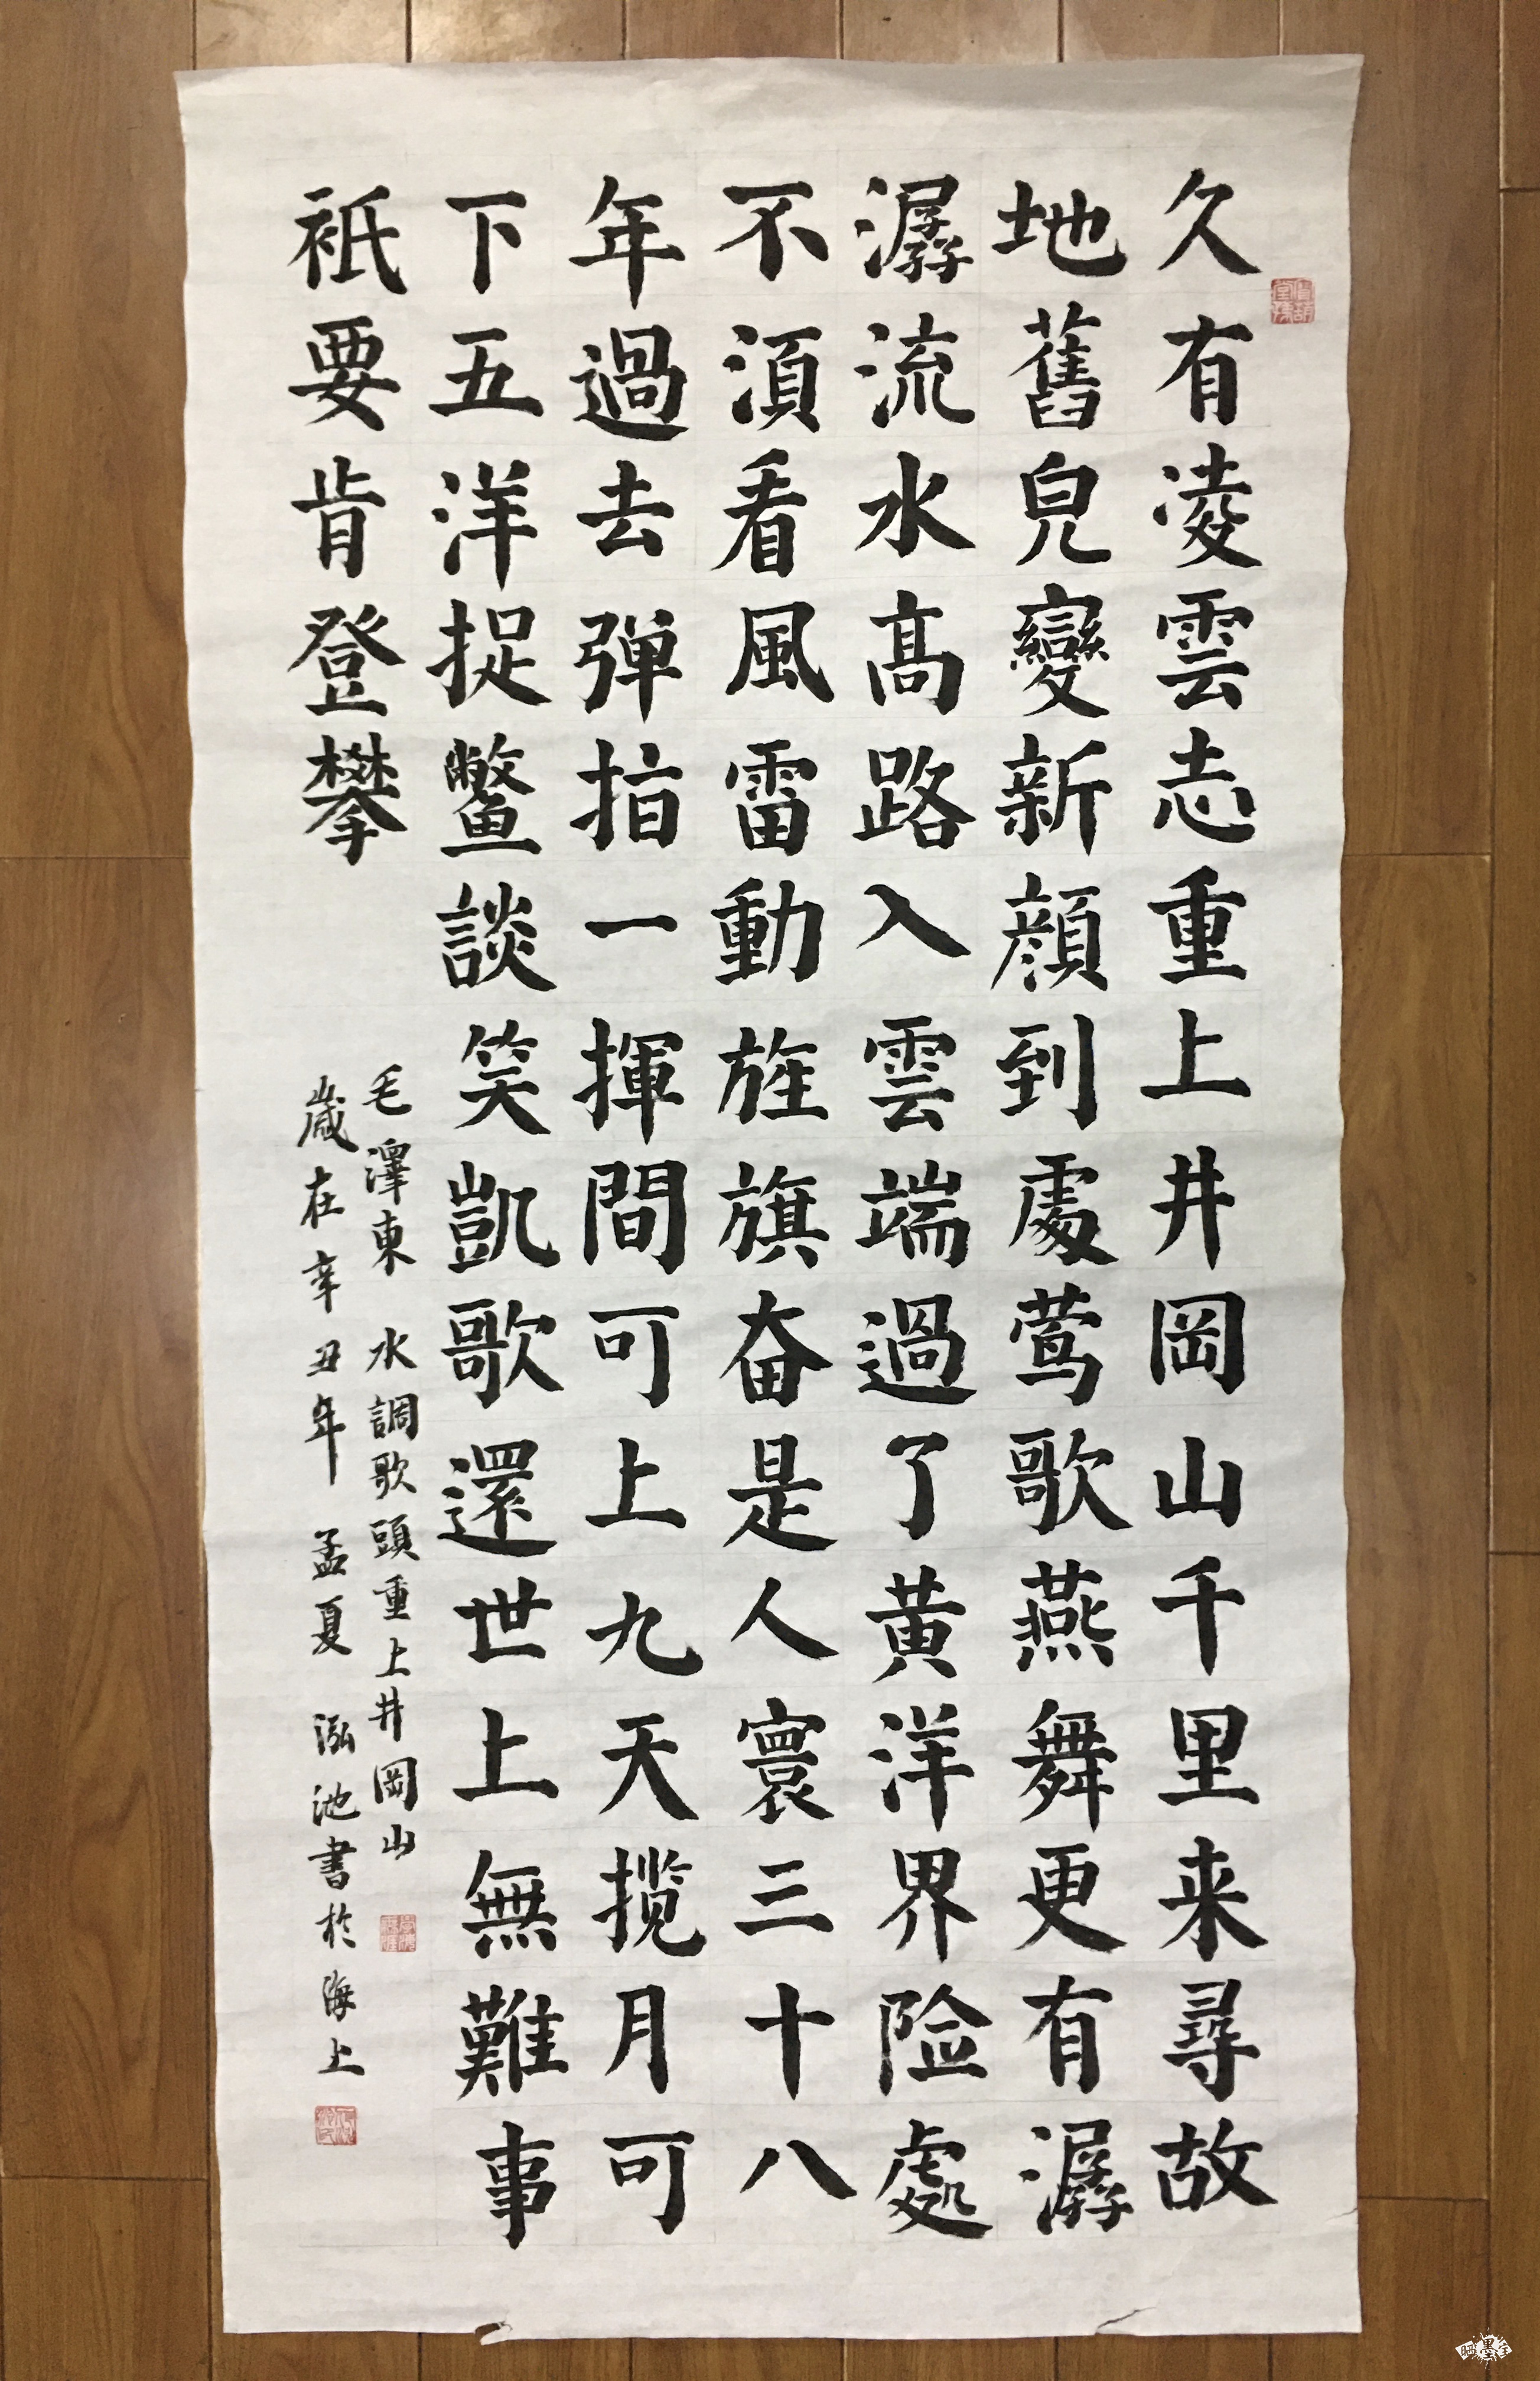 久有凌雲志重上井岡山千里来尋故
地舊皃變新顔到處莺歌燕舞更有潺
潺流水髙路入雲端過了黄洋界险處
不湏看風雷動旌旗奋是人寰三十八
年過去弹指一揮間可上九天揽月可
下五洋捉鳖談笑凱歌還世上無難事
衹要肯登攀
毛澤東 水調歌頭重上井岡山
歲在辛丑年 孟夏 泓池書於海上